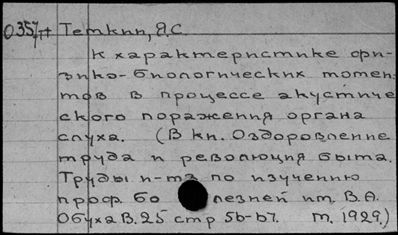 0357н Темкин, Я.С.
К характеристике фи-
зико-биологических момен-
тов в процессе акустиче
ского поражения органа
слуха. (В кн. Оздоровление
труда и революция быта.
Труды и-та по изучению
проф. бо лезней им. В.А.
Обуха В. 25 стр 56-67. М. 1929.)